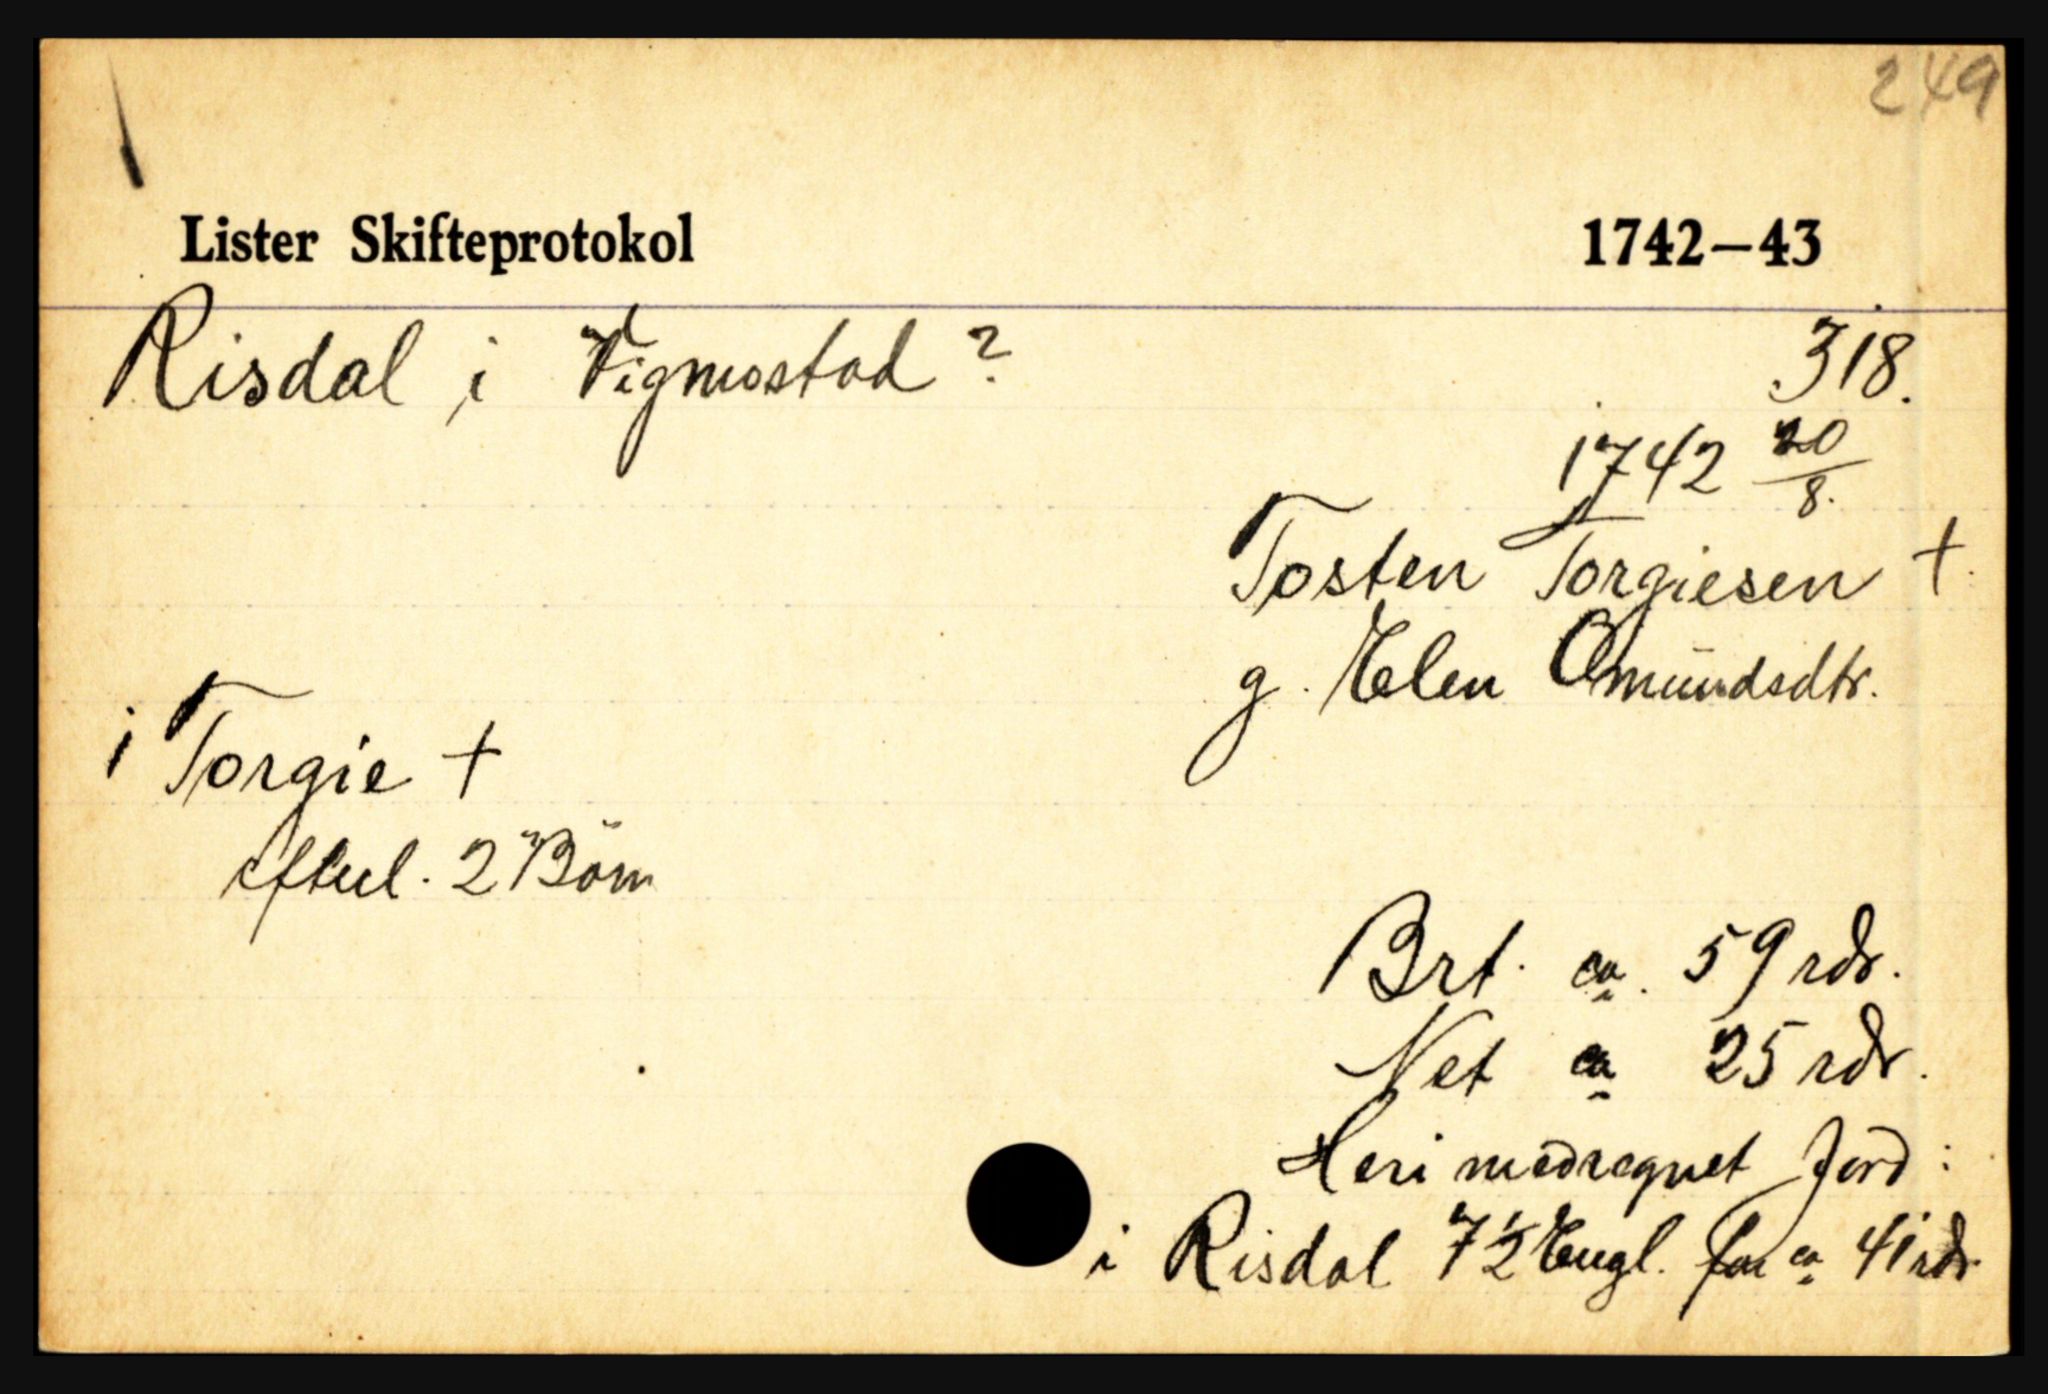 249
Lister Skifteprotokol 1742–43
Risdal i Vigmostad?
318.
1742 20/8.
Tosten Torgiesen +
g. Elen Omŭndsdtr.
i Torgie +
efterl. 2 Börn
Brt. ca. 59 rdr.
Net ca 25 rdr.
Heri medregnet Jord:
i Risdal 7 1/2 Engl. for ca 41 rdr